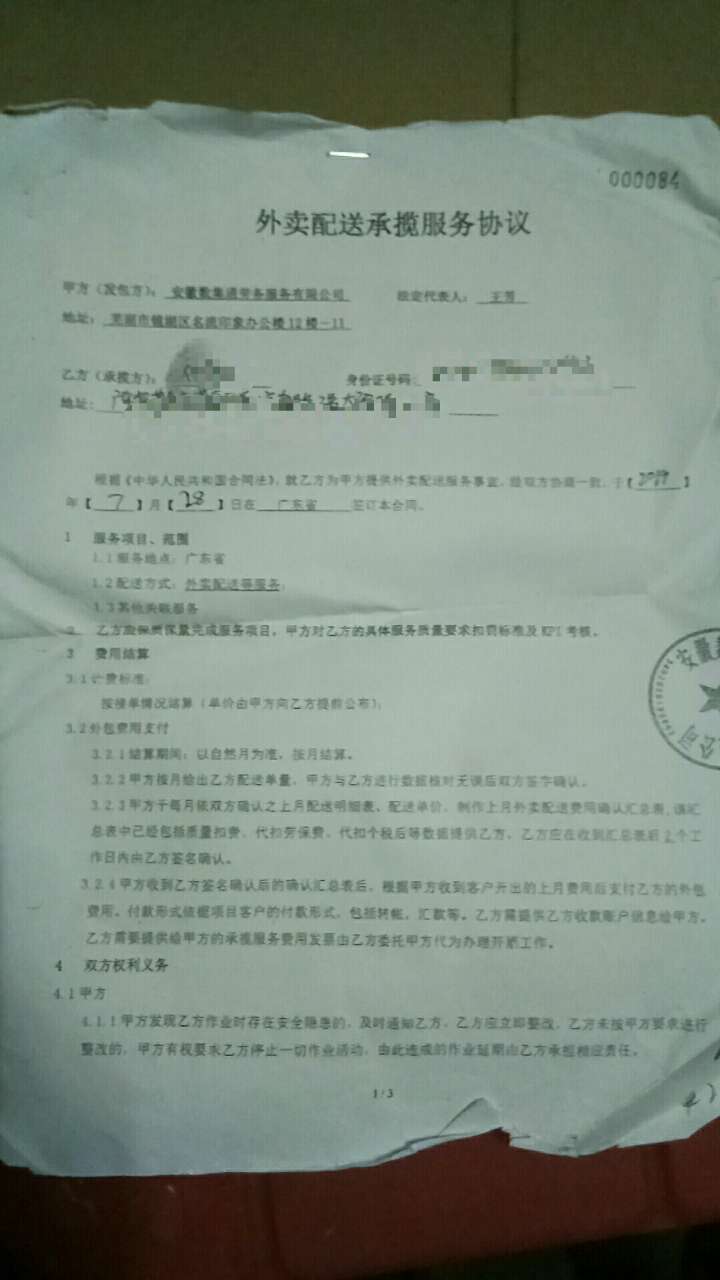 000084
外卖配送承揽服务协议
甲方（发包方）： 安徽数集通劳务服务有限公司 法定代表人： 王芳
地址： 芜湖市镜湖区名流印象办公楼12楼-11
乙方（承揽方）： 身份证号码：
地址：
根据《中华人民共和国合同法》，就乙方为甲方提供外卖配送服务事宜，经双方协商一致，于【 】
年【 7 】月【 28 】日在 广东省 签订本合同。
1 服务项目、范围
1.1服务地点：广东省
1.2配送方式：外卖配送等服务；
1.3其他关联服务
2 乙方应保质保量完成服务项目，甲方对乙方的具体服务质量要求扣罚标准及KPI考核。
3 费用结算
3.1计费标准：
按接单情况结算（单价由甲方向乙方提前公布）；
3.2外包费用支付
3.2.1结算期间：以自然月为准，按月结算。
3.2.2甲方按月给出乙方配送单量，甲方与乙方进行数据核对无误后双方签字确认。
3.2.3甲方于每月依双方确认之上月配送明细表、配送单价，制作上月外卖配送费用确认汇总表，该汇
总表中已经包括质量扣费，代扣劳保费，代扣个税后等数据提供乙方，乙方应在收到汇总表后2个工
作日内由乙方签名确认。
3.2.4甲方收到乙方签名确认后的确认汇总表后，根据甲方收到客户开出的上月费用后支付乙方的外包
费用。付款形式依据项目客户的付款形式，包括转帐，汇款等。乙方需提供乙方收款账户信息给甲方。
乙方需要提供给甲方的承揽服务费用发票由乙方委托甲方代为办理开票工作。
4 双方权利义务
4.1甲方
4.1.1甲方发现乙方作业时存在安全隐患的，及时通知乙方，乙方应立即整改，乙方未按甲方要求进行
整改的，甲方有权要求乙方停止一切作业活动，由此造成的作业延期由乙方承担相应责任。
1/3
安徽
公司